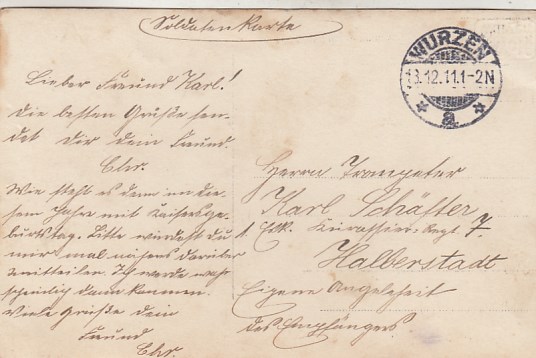 Soldatenkarte
WURZEN
13.12.11.1-2N
* a *
Lieber Freund Karl!
Die besten Grüße sen-
det dir dein Freund.
Chr.
Wie steht es denn in die-
sem Jahre mit Kaisersge-
burtstag. Bitte würdest du
mir mal näheres darüber
mitteilen. Ich werde wahr-
scheinlich dann kommen.
Viele Grüße dein
Freund
Chr.
Herrn Trompeter
Karl Schäffer
Kürassier-Regt. 7.
Halberstadt
Eigene Angelegheit
des Empfängers.